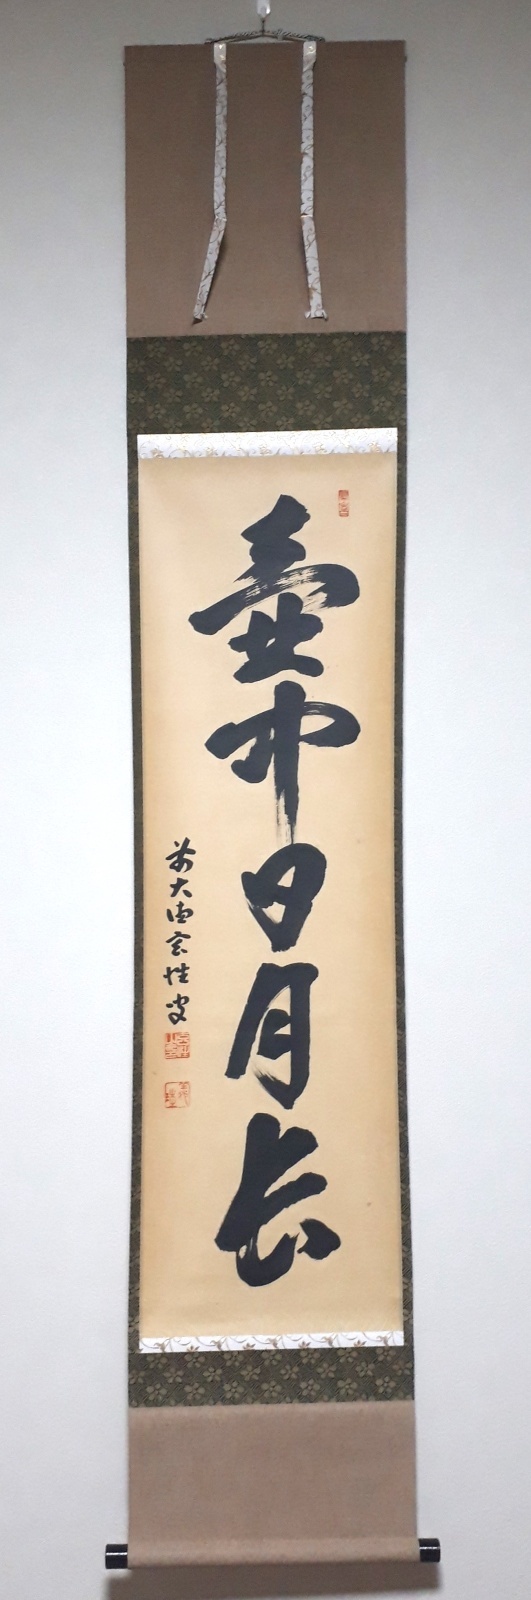 壺中日月長
前大徳玄性叟